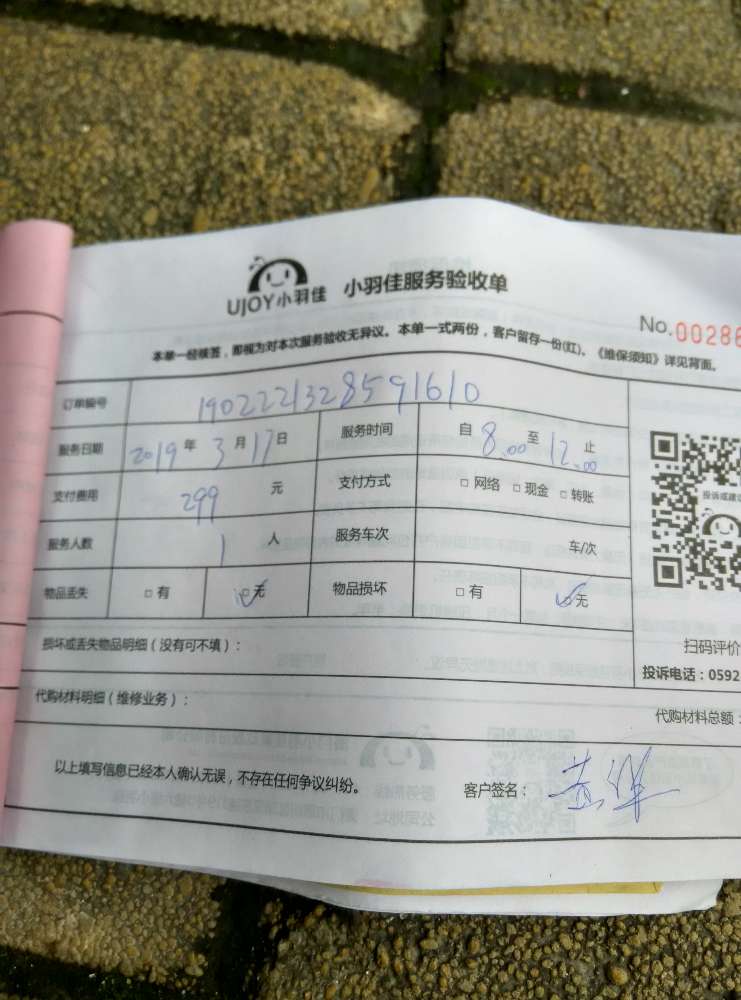 UJOY小羽佳 小羽佳服务验收单
No.00286
本单一经核签，即视为对本次服务验收无异议。本单一式两份，客户留存一份(红)。《维保须知》详见背面。
订单编号 1902221328591610
服务日期 2019年3月17日 服务时间 自8:00至12:00止
支付费用 299元 支付方式 □网络 □现金 □转账
服务人数 1人 服务车次 车/次
投诉或建议
物品丢失 □有 ☑无 物品损坏 □有 ☑无
损坏或丢失物品明细（没有可不填）：
扫码评价
投诉电话：0592
代购材料明细（维修业务）： 代购材料总额：
以上填写信息已经本人确认无误，不存在任何争议纠纷。 客户签名：